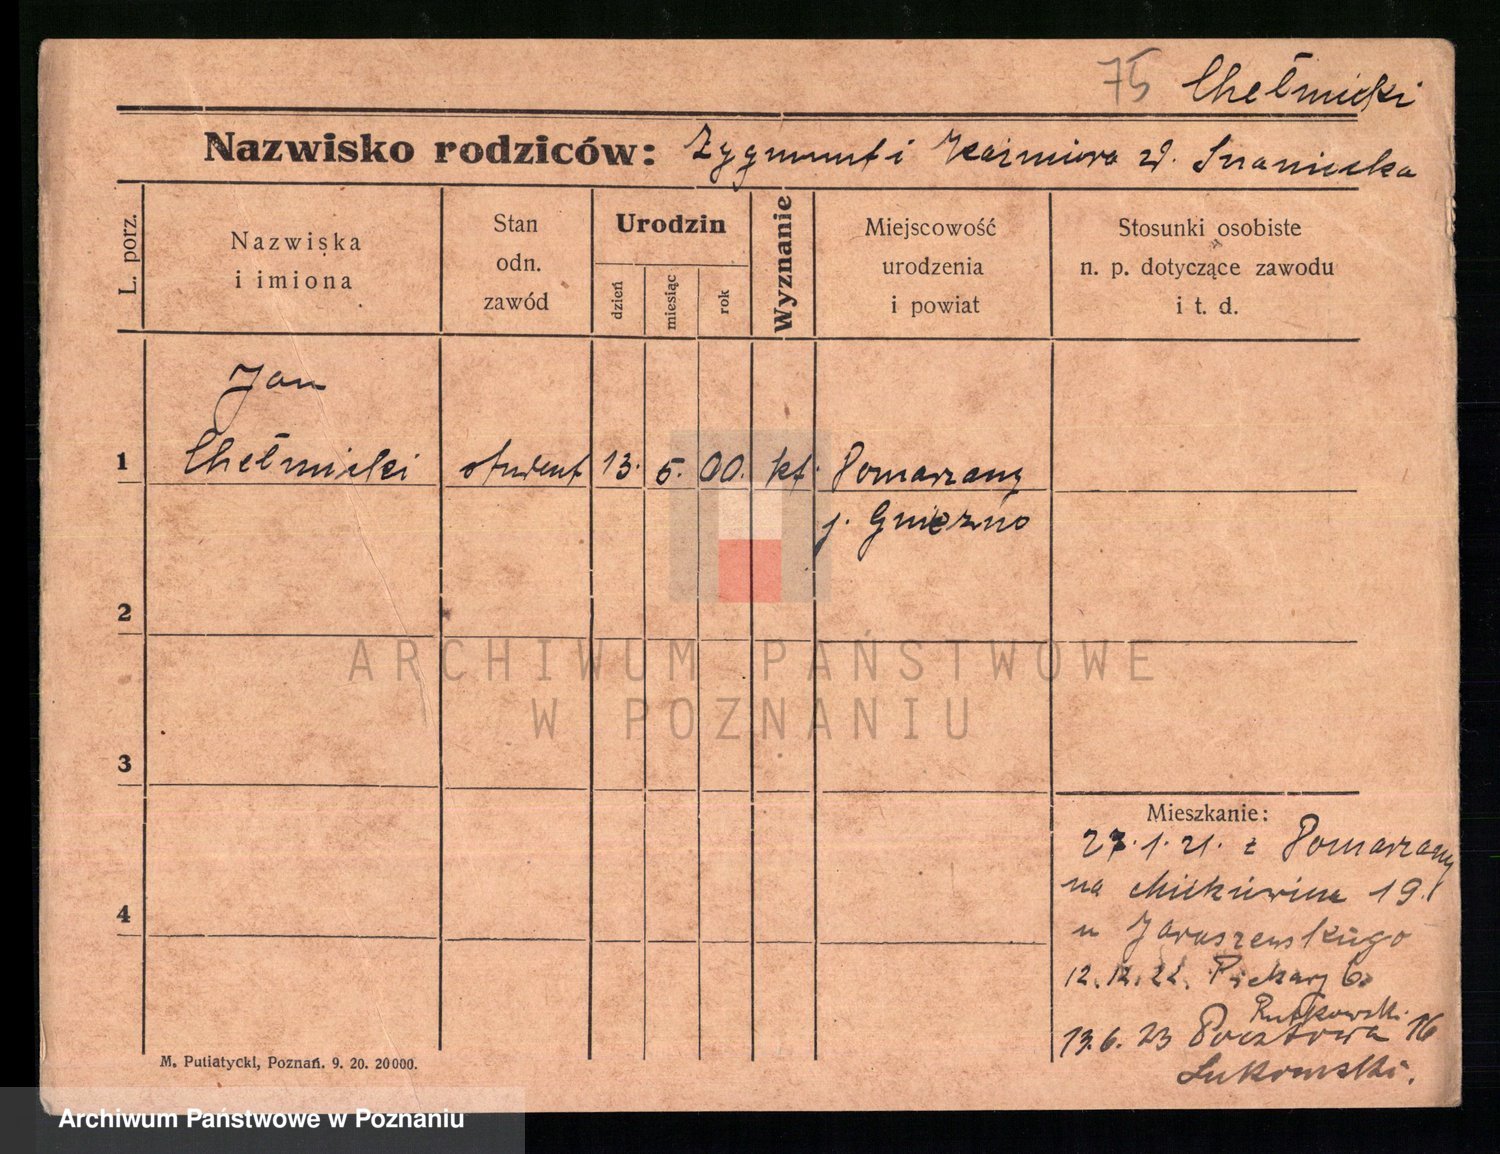 75 Chełmicki
Nazwisko rodziców: Zygmunt i Kazmiera
L. porz.
Nazwiska
i imiona
Stan
odn.
zawód
Urodzin
dzień
miesiąc
rok
Wyznanie
Miejscowość
urodzenia
i powiat
Stosunki osobiste
n. p. dotyczące zawodu
i t. d.
Jan
1 Chełmicki student 13. 5. 00. kt. Pomarzany
p. Gniezno
2
3
4
ARCHIWUM PAŃSTWOWE
W POZNANIU
Mieszkanie:
27.1.21. z Pomarzany
na Mickiewicza 19.
u Jaraszewskiego
12.12.22. Piekary 6.
Rutkowski
13.6.23 Pocztowa 16
Łukomski.
M. Putiatycki, Poznań. 9. 20. 20000.
Archiwum Państwowe w Poznaniu